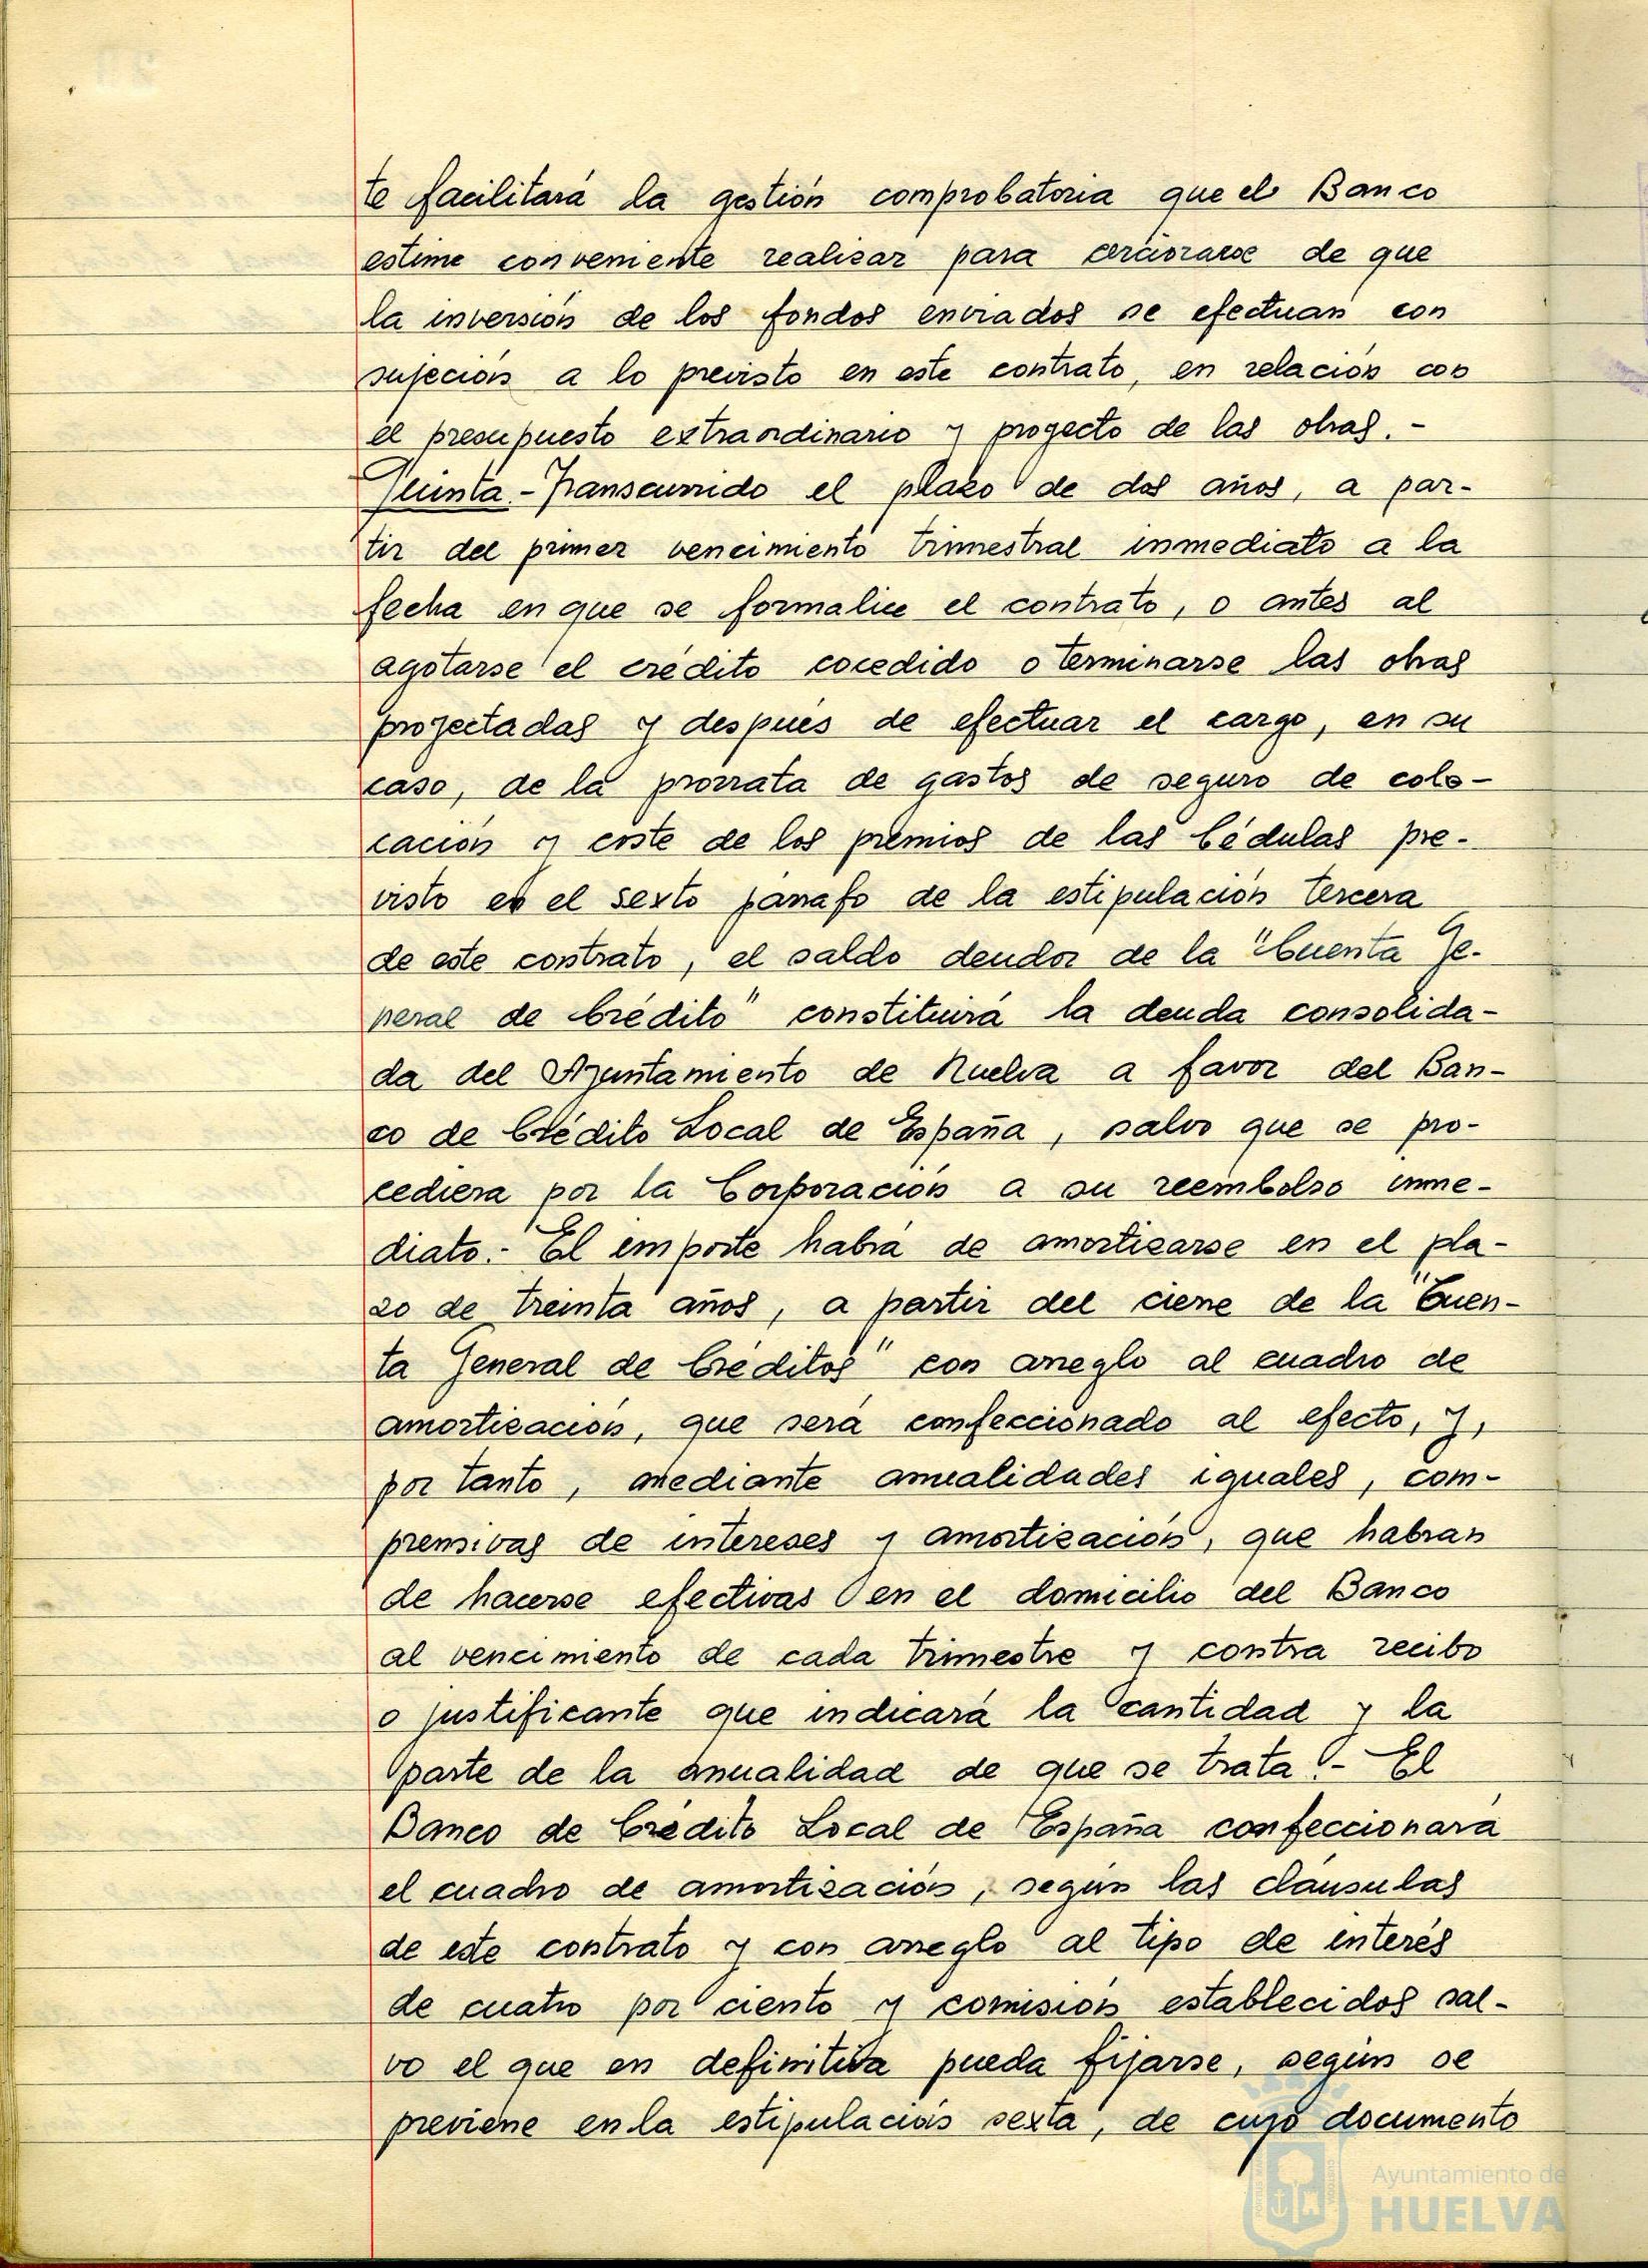 te facilitará la gestión comprobatoria que el Banco
estime conveniente realizar para cerciorarse de que
la inversión de los fondos enviados se efectúan con
sujeción a lo previsto en este contrato, en relación con
el presupuesto extraordinario y proyecto de las obras.-
Quinta.- Transcurrido el plazo de dos años, a par-
tir del primer vencimiento trimestral inmediato a la
fecha en que se formalice el contrato, o antes al
agotarse el crédito cocedido o terminarse las obras
proyectadas y después de efectuar el cargo, en su
caso, de la prorrata de gastos de seguro de colo-
cación y coste de los premios de las Cédulas pre-
visto en el sexto párrafo de la estipulación tercera
de este contrato, el saldo deudor de la "Cuenta Ge-
neral de Crédito" constituirá la deuda consolida-
da del Ayuntamiento de Huelva a favor del Ban-
co de Crédito Local de España, salvo que se pro-
cediera por la Corporación a su reembolso inme-
diato.- El importe habrá de amortizarse en el pla-
zo de treinta años, a partir del cierre de la "Cuen-
ta General de Créditos" con arreglo al cuadro de
amortización, que será confeccionado al efecto, y,
por tanto, mediante anualidades iguales, com-
prensivas de intereses y amortización, que habrán
de hacerse efectivas en el domicilio del Banco
al vencimiento de cada trimestre y contra recibo
o justificante que indicará la cantidad y la
parte de la anualidad de que se trata.- El
Banco de Crédito Local de España confeccionará
el cuadro de amortización, según las cláusulas
de este contrato y con arreglo al tipo de interés
de cuatro por ciento y comisión establecidos sal-
vo el que en definitiva pueda fijarse, según se
previene en la estipulación sexta, de cuyo documento
Ayuntamiento de
HUELVA